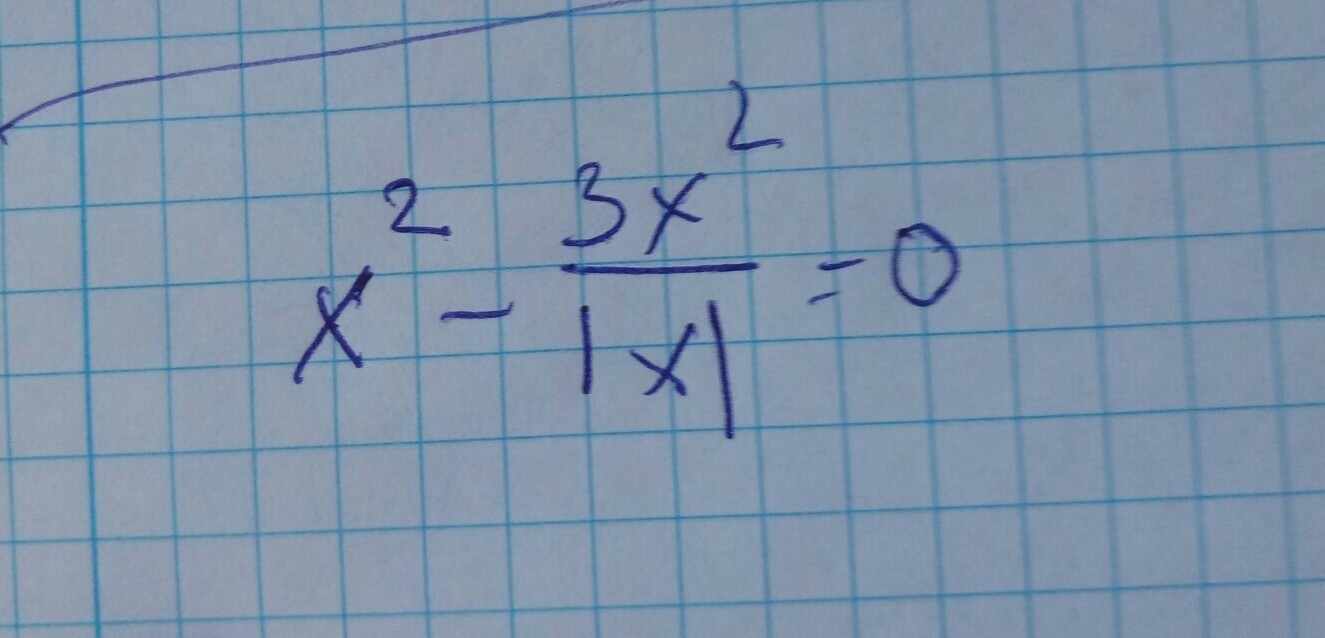 x² - 3x²/|x| = 0